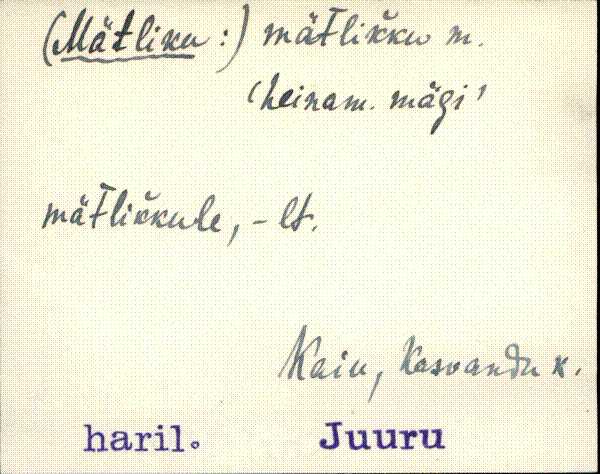 (Mätliku:) mät̄lik̆ku m.
'heinam. mägi'
mät̄lik̆kule, -lt.
Kaiu, Kasvandu k.
haril. Juuru